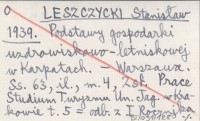 O LESZCZYCKI Stanisław
1939. Podstawy gospodarki
uzdrowiskowo - letniskowej
w Karpatach. — Warszawa.
Ss. 63, il., m. 4, Prace
Studium Turyzmu Un. Jag. Kra-
kowie t. 5 = odb. z I. Rocznika